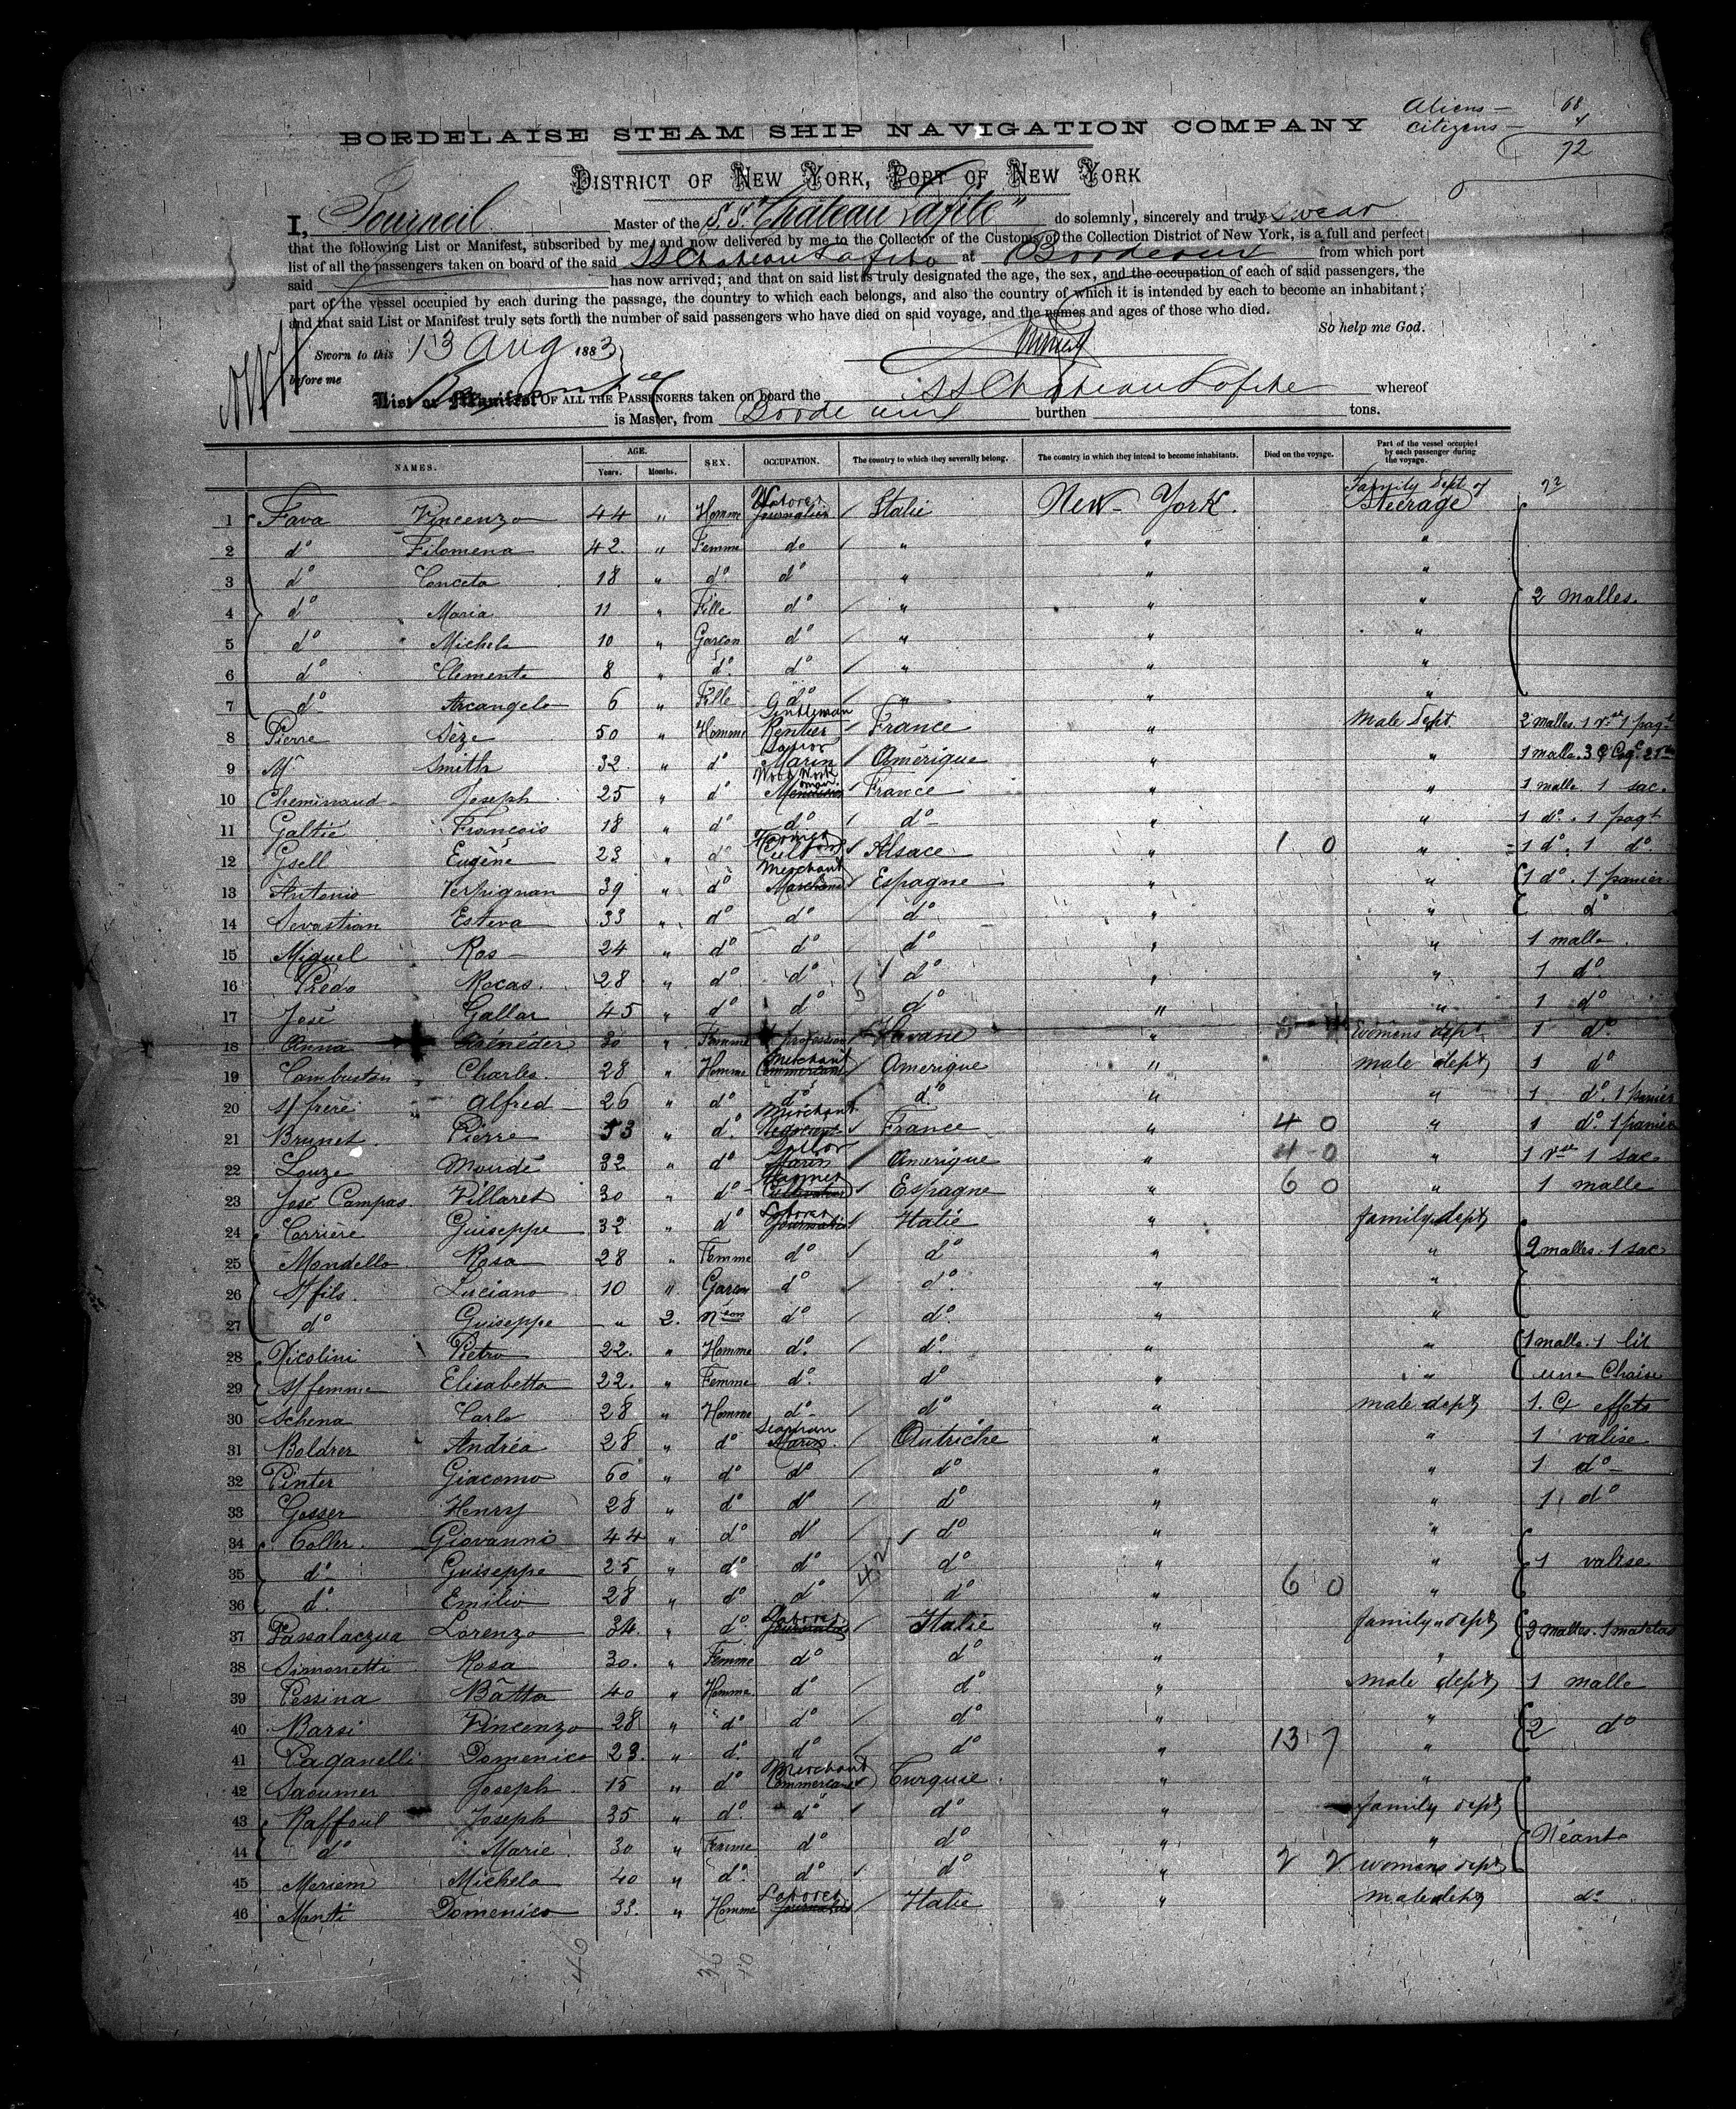 Aliens — 68
Citizens — 4
72
BORDELAISE STEAM SHIP NAVIGATION COMPANY
DISTRICT OF NEW YORK, PORT OF NEW YORK
I, Tourneil Master of the S.S. "Château Lafite" do solemnly, sincerely and truly swear
that the following List or Manifest, subscribed by me, and now delivered by me to the Collector of the Customs of the Collection District of New York, is a full and perfect
list of all the passengers taken on board of the said SS Chateau Lafite at Bordeaux from which port
said has now arrived; and that on said list is truly designated the age, the sex, and the occupation of each of said passengers, the
part of the vessel occupied by each during the passage, the country to which each belongs, and also the country of which it is intended by each to become an inhabitant;
and that said List or Manifest truly sets forth the number of said passengers who have died on said voyage, and the names and ages of those who died.
So help me God.
Sworn to this 13 Aug 1883
before me
List or Manifest OF ALL THE PASSENGERS taken on board the SS Chateau Lafite whereof
is Master, from Bordeaux burthen tons.
NAMES. AGE. Years. Months. SEX. OCCUPATION. The country to which they severally belong. The country in which they intend to become inhabitants. Died on the voyage. Part of the vessel occupied by each passenger during the voyage.
Family Dept of 72
1 Fava Vincenzo 44 " Homme Laborer Journalier Italie New-York. Steerage
2 do Filomena 42. " Femme do " " "
3 do Conceta 18 " do do " " "
4 do Maria 11 " Fille do " " " 2 malles
5 do Michele 10 " Garcon do " " "
6 do Clemente 8 " do do " " "
7 do Arcangelo 6 " Fille do " " "
8 Pierre Sèze 50 " Homme Gentleman Rentier France " Male Dept 2 malles. 1 vse 1 paqt
9 Mr Smith 32 " do Sailor Marin Amérique " " 1 malle. 3
10 Cheminaud Joseph 25 " do Wood Work man France " " 1 malle 1 sac.
11 Galtié François 18 " do do do " " 1 do. 1 paqt
12 Gsell Eugène 23 " do Farmer Alsace " 1 0 " 1 do. 1 do.
13 Antonio Verhignan 39 " do Merchant Marchand Espagne " " 1 do. 1 panier
14 Sevastian Esteva 33 " do do do " " do
15 Miguel Ros 24 " do do do " " 1 malle
16 Predo Rocas. 28 " do do do " " 1 do
17 José Gallar 45 " do do do " " 1 do
18 Anna 30 " Femme profession Havane " Womens dept 1 do
19 Combustan Charles. 28 " Homme Merchant Commercant Amerique " male dept 1 do
20 s/ frère Alfred 26 " do do do " " 1 do. 1 panier
21 Brunet Pierre 53 " do. Merchant Negociant France " 4 0 " 1 do. 1 panier
22 Louze Maudé 32 " do Sailor Marin Amerique " 4-0 " 1 vse 1 sac
23 José Campas Villaret 30 " do Farmer Cultivateur Espagne " 6 0 " 1 malle
24 Corrière Guiseppe 32 " do Laborer Journalier Italie " family dept
25 Mondello Rosa 28 " Femme do do " " 2 malles. 1 sac
26 S/ fils. Luciano 10 " Garcon do do. " "
27 do Guiseppe " 2. do. do. " "
28 Nicolini Pietro 22. " Homme do. do. " " 1 malle. 1 lit
29 s/ femme Elisabetta 22. " Femme do. do " " une Chaise
30 Schena Carlo 28 " Homme do do " male dept 1. effets
31 Boldrer Andréa 28 " do Seaman Marin. Autriche " " 1 valise
32 Pinter Giacomo 60 " do do do " " 1 do
33 Gosser Henry 28 " do do do " " 1 do
34 Coller. Giovanni 44 " do do do " "
35 do Guiseppe 25 " do do do " " 1 valise
36 do. Emilio 28 " do do do " 6 0 "
37 Passalacqua Lorenzo 34. " do. Laborer Journalier Italie " family dept 2 malles. 1 matelas
38 Simonetti Rosa 30. " Femme do do " "
39 Pessina Batta 40 " Homme do do " male dept 1 malle
40 Barsi Vincenzo 28 " do do do " " 2 do
41 Paganelli Domenico 23. " do. do do " 13 7 "
42 Saoumer Joseph 15 " do Merchant Commercant Turquie. " "
43 Raffoul Joseph 35 " do. do do " family dept
44 do Marie 30 " Femme do do " " Néant
45 Meriem Michela 40 " do. do do " 2 2 womens dept
46 Manti Domenico 33. " Homme Laborer Journalier Italie " male dept do
46